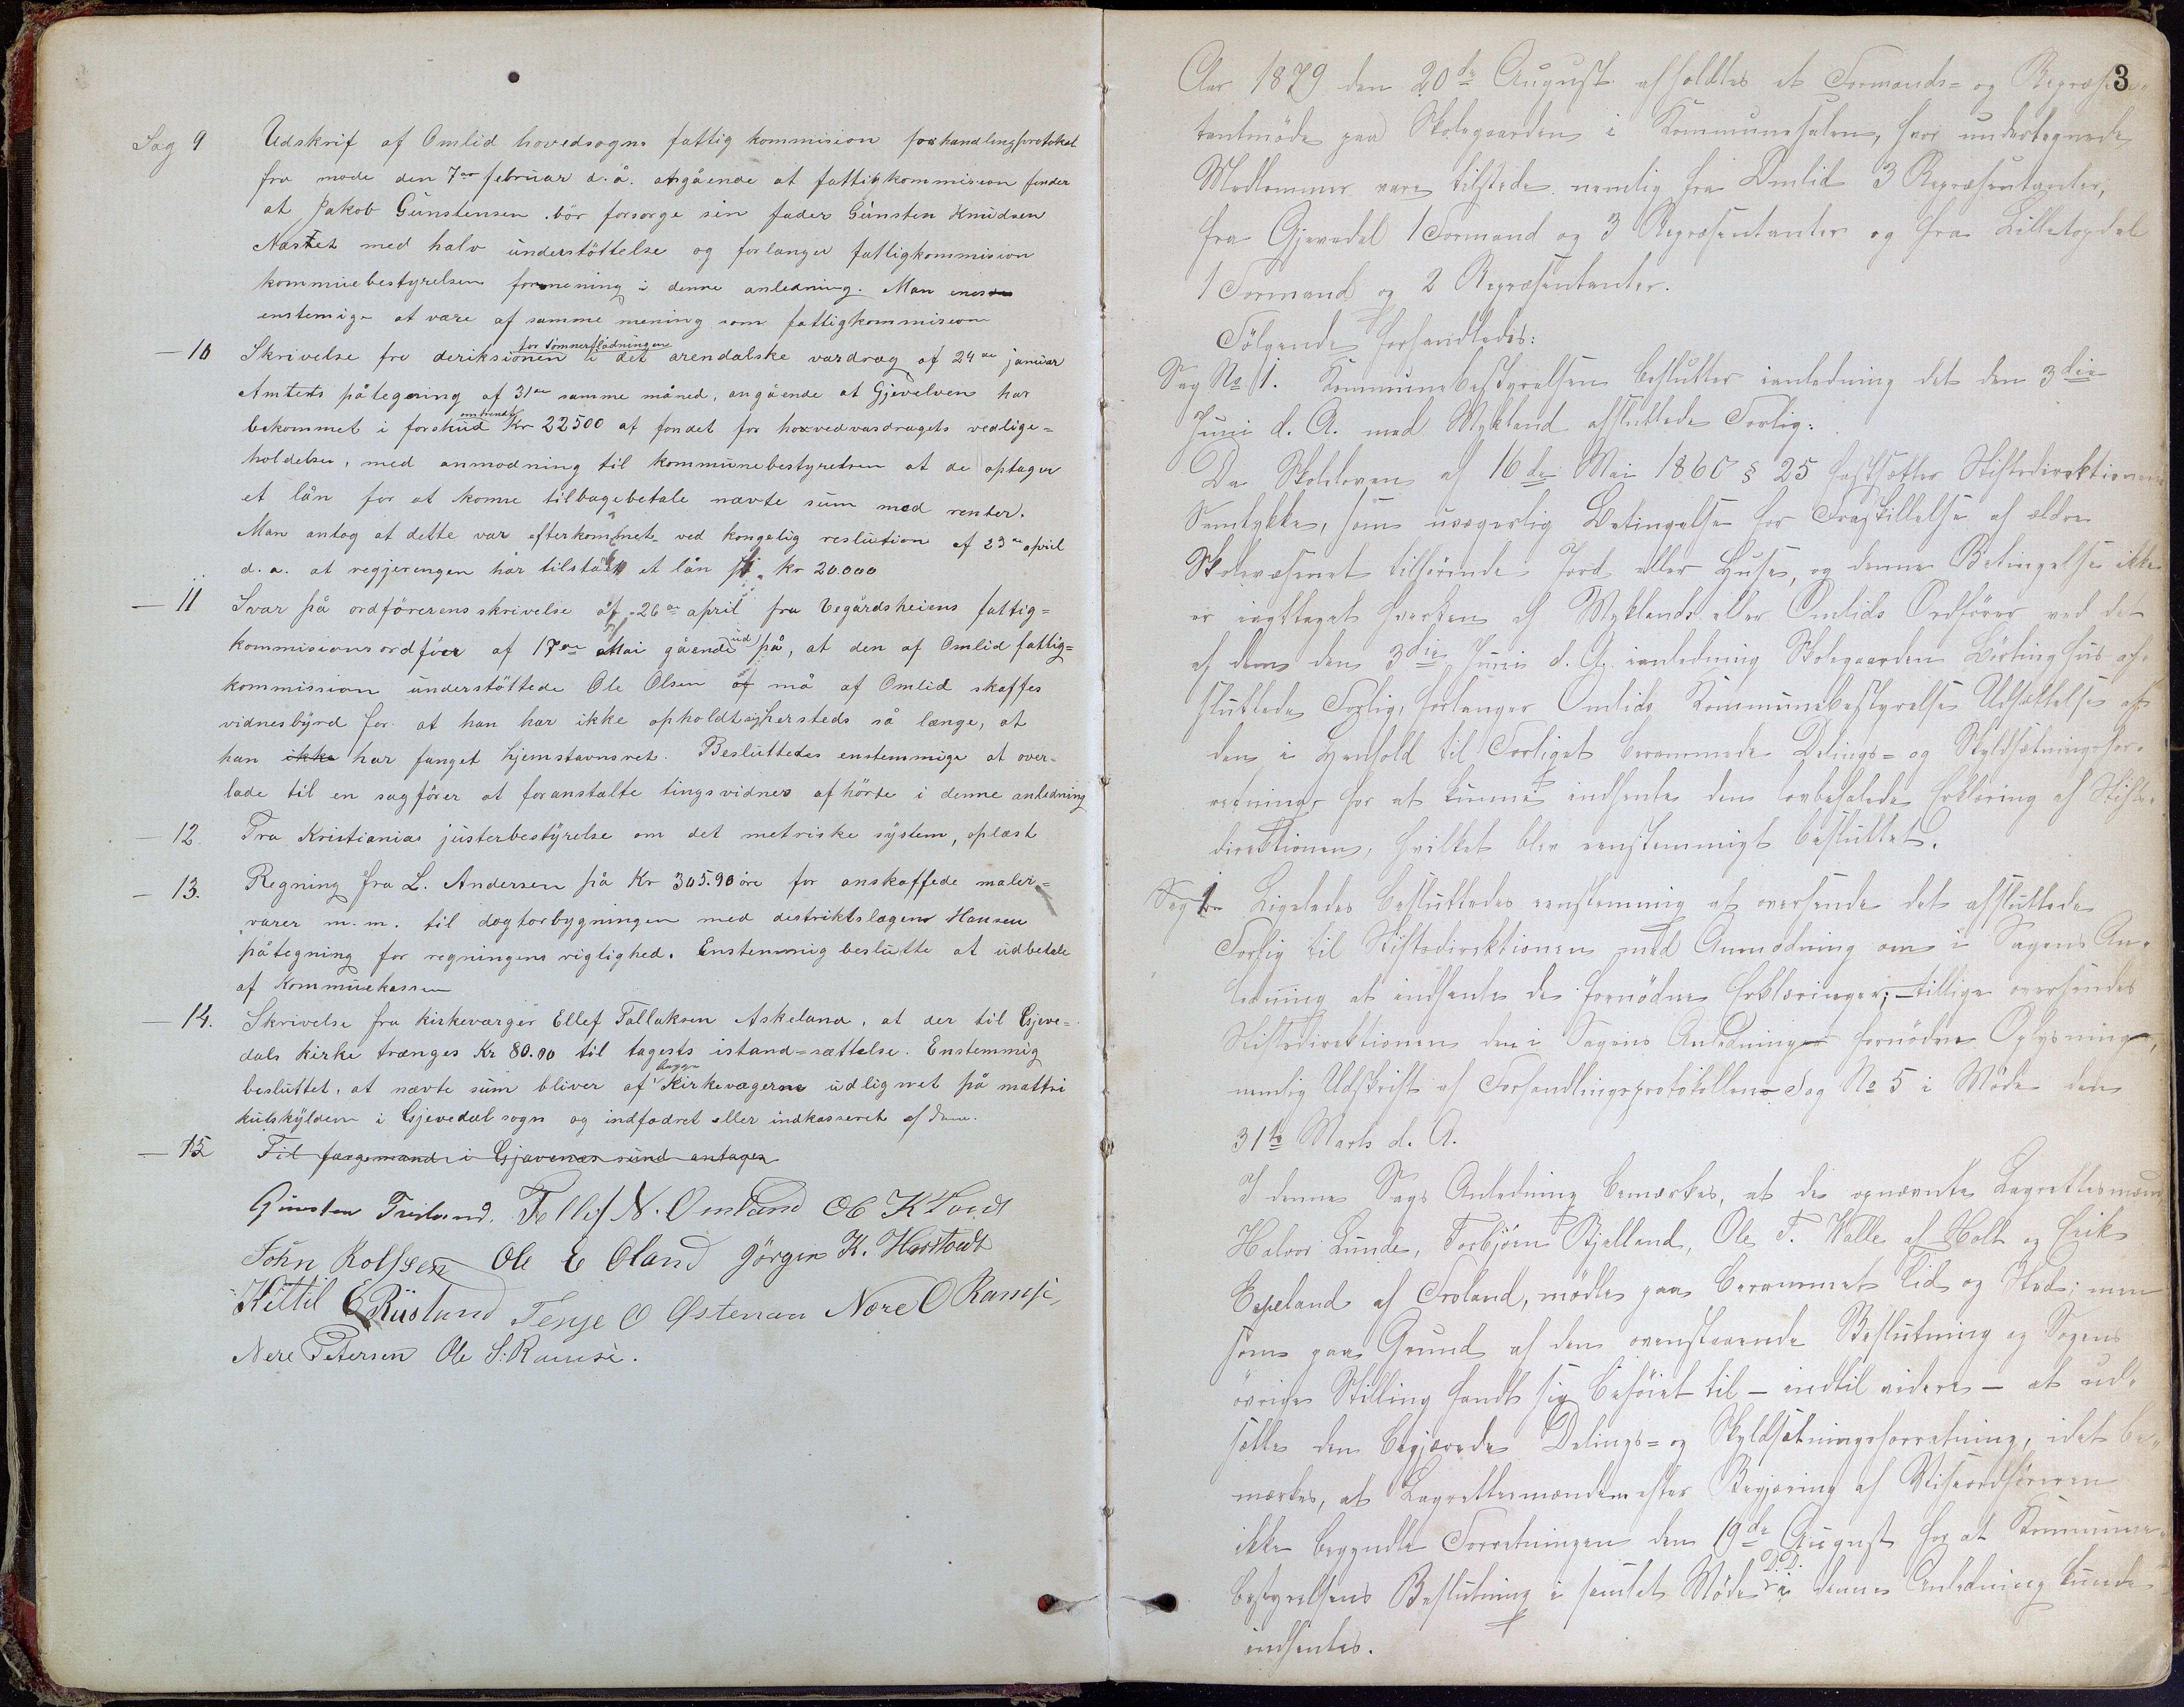 Sag 9 Udskrif af Omlid hovedsogns fattig kommision forhandlingsprotokol
fra mode den 7de februar d. å. angående at fattigkommision finder
at Jakob Gunstensen bör forsorge sin fader Gunsten Knudsen
Næstet med halv understöttelse og forlanger fattigkommision
kommuebestyrelsen formening i denne anledning. Man
enstemige at være af samme mening som fattigkommision
— 10 Skrivelse fra deriksionen for tömmerflödningen i det arendalske vasdrag af 24de januar
Amtets påtegning af 31te samme måned, angående at Gjevelven har
bekommet i forskud omtrent Kr 22500 af fondet for hovedvasdragets vedlige=
holdelse, med anmodning til kommunebestyrelsen at de optager
et lån for at kunne tilbagebetale nævte sum med renter.
Man antog at dette var efterkommet ved kongelig reslution af 23de april
d. a. at regjeringen har tilstået et lån på kr 20.000
— 11 Svar på ordförerens skrivelse af 26de april fra Vegårdsheiens fattig=
kommisions ordförer af 17de Mai gående ud på, at den af Omlid fattig=
kommission understöttede Ole Olsen må af Omlid skaffes
vidnesbyrd for at han har ikke opholdt sig hersteds så længe, at
han ikke har fanget hjemstavnsret. Besluttedes enstemmige at over-
lade til en sagförer at foranstalte tingsvidner afhörte i denne anledning
— 12 Fra Kristianias justerbestyrelse om det metriske system, oplæst
— 13. Regning fra L. Andersen på Kr 305.90 öre for anskaffede maler=
varer m. m. til dogtorbygningen med distriktslægens Hansen
påtegning for regningens rigtighed. Enstemmig beslutte at udbetale
af Kommuekassen
— 14. Skrivelse fra kirkeværger Ellef Tallaksen Askeland, at der til Gjeve=
dals kirke trænges Kr 80.00 til tagets istand=sættelse. Enstemmig
besluttet, at nævte sum bliver af begge Kirkevægerne udlignet på mattri
kulskylden i Gjevedal sogn og indfodret eller indkasseret af dem.
— 15 Til færgemand i Gjævenæs sund antages
Gunsten Tveland. Tellef N. Omland Ob K Loodt
John Rolfsen Ole E Oland Jörgen K. Harstvedt
Kittil E Risland Terje O Östenaa Nere O Ramse
Nere Petersen Ole S. Ramse.
3
Aar 1879 den 20de August afholdtes et Formands= og Repræsen=
tantmöde paa Skolegaarden i Kommunesalen, hvor undertegnede
Medlemmer vare tilstede nemlig fra Omlid 3 Repræsentanter,
fra Gjevedal 1 Formand og 3 Repræsentanter og fra Lilletopdal
1 Formand og 2 Repræsentanter.
Fölgende forhandledes:
Sag No 1. Kommunebestyrelsen beslutter ianledning det den 3die
Juni d. A. med Mykland afsluttede Forlig:
Da Skoleloven af 16de Mai 1860 § 25 fastsætter Stiftsdirektionens
Samtykke, som uvægerlig Betingelse for Fraskillelse af ældre
Skolevæsenet tilhörende Jord eller Huse, og denne Betingelse ikke
er iagttaget hverken af Myklands eller Omlids Ordförer ved det
af dem den 3die Juni d. A. ianledning Skolegaarden hus af-
sluttede Forlig, forlanger Omlids Kommunebestyrelse Udsættelse af
den i Henhold til Forliget berammede Delings= og Skyldsætningsfor-
retning for at kunne indhente den lovbefalede Erklæring af Stifts-
direktionen, hvilket blev eenstemmigt besluttet.
Sag Ligeledes besluttedes eenstemmig at oversende det afsluttede
Forlig til Stiftsdirektionen med Anmodning om i Sagens An-
ledning at indhente de fornödne Erklæringer; tillige oversendes
Stiftsdirektionen den i Sagens Anledning fornödne Oplysning,
nemlig Udskrift af Forhandlingsprotokollen Sag No 5 i Möde den
31te Marts d. A.
I denne Sags Anledning bemærkes, at de opnævnte Lagrettesmænd
Halvor Lunde, Torbjörn Bjelland, Ole T. Walle af Holt og Erik
Espeland af Froland, mödte paa berammet Tid og Sted; men
som paa Grund af den ovenstaaende Beslutning og Sagens
övrige Stilling fandt sig beföiet til — indtil videre — at ud-
sætte den begjærede Delings= og Skyldsætningsforretning, idet be-
mærkes, at Lagrettesmændene efter Begjæring af Viseordföreren
ikke begyndte Forretningen den 19de August for at Kommune-
bestyrelsens Beslutning i samlet Möde D.D. i denne Anledning kunde
indhentes.